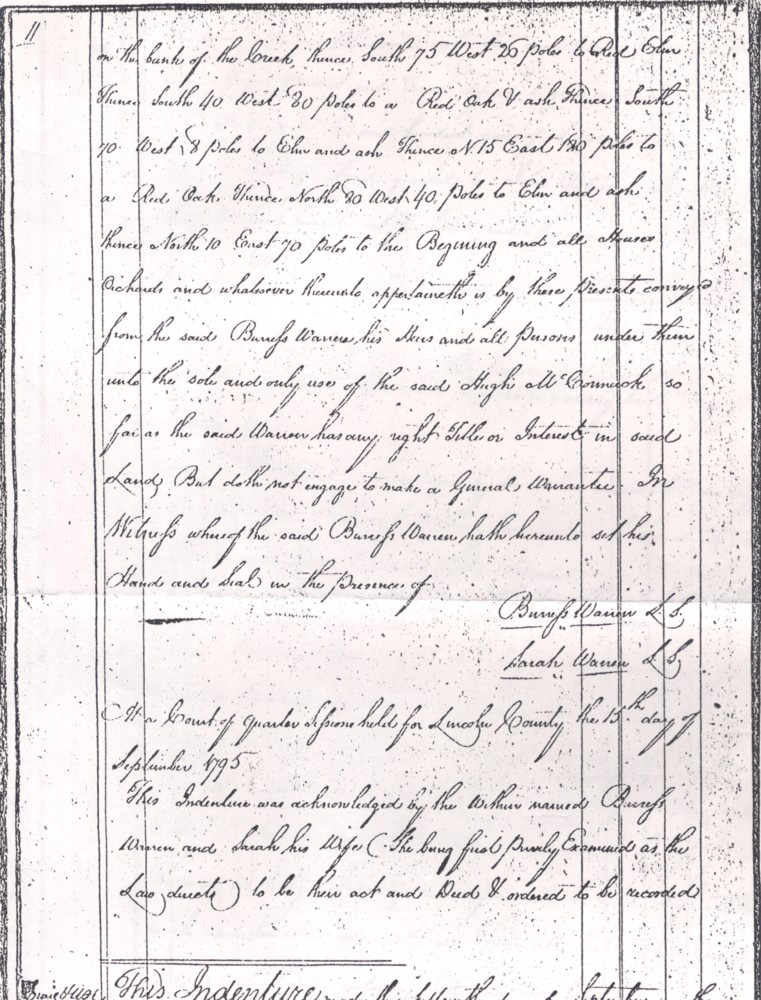 11
on the bank of the Creek, thence South 75 West 26 poles to Red Elm
Thence South 40 West 80 poles to a Red Oak & ash, Thence South
70 West 8 poles to Elm and ash Thence N. 15 East 180 poles to
a Red Oak Thence North 20 West 40 poles to Elm and ash
thence North 10 East 70 poles to the Begining and all Houses
Orchards and whatsoever thereunto appertaineth is by these presents conveyed
from the said Burress Warren his Heirs and all persons under them
unto the sole and only use of the said Hugh McCormick so
far as the said Warren has any right Title or Interest in said
Land, But doth not engage to make a General Warrantee. In
Witness whereof the said Burress Warren hath hereunto set his
Hand and Seal in the presence of
Burress Warren L.S.
Sarah Warren L.S.
At a Court of quarter Sessions held for Lincoln County the 15th day of
September 1795
This Indenture was acknowledged by the within named Burress
Warren and Sarah his Wife (She being first privily Examined as the
Law directs) to be their act and Deed & ordered to be recorded
This Indenture made the